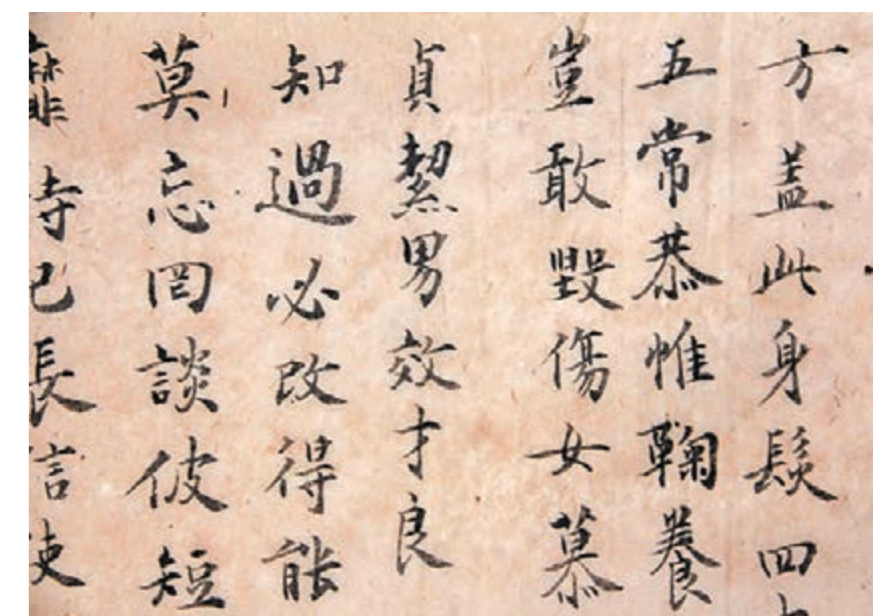 方盖此身髮四大
五常恭惟鞠養
豈敢毀傷女慕
貞絜男效才良
知過必改得能
莫忘罔談彼短
靡恃己長信使